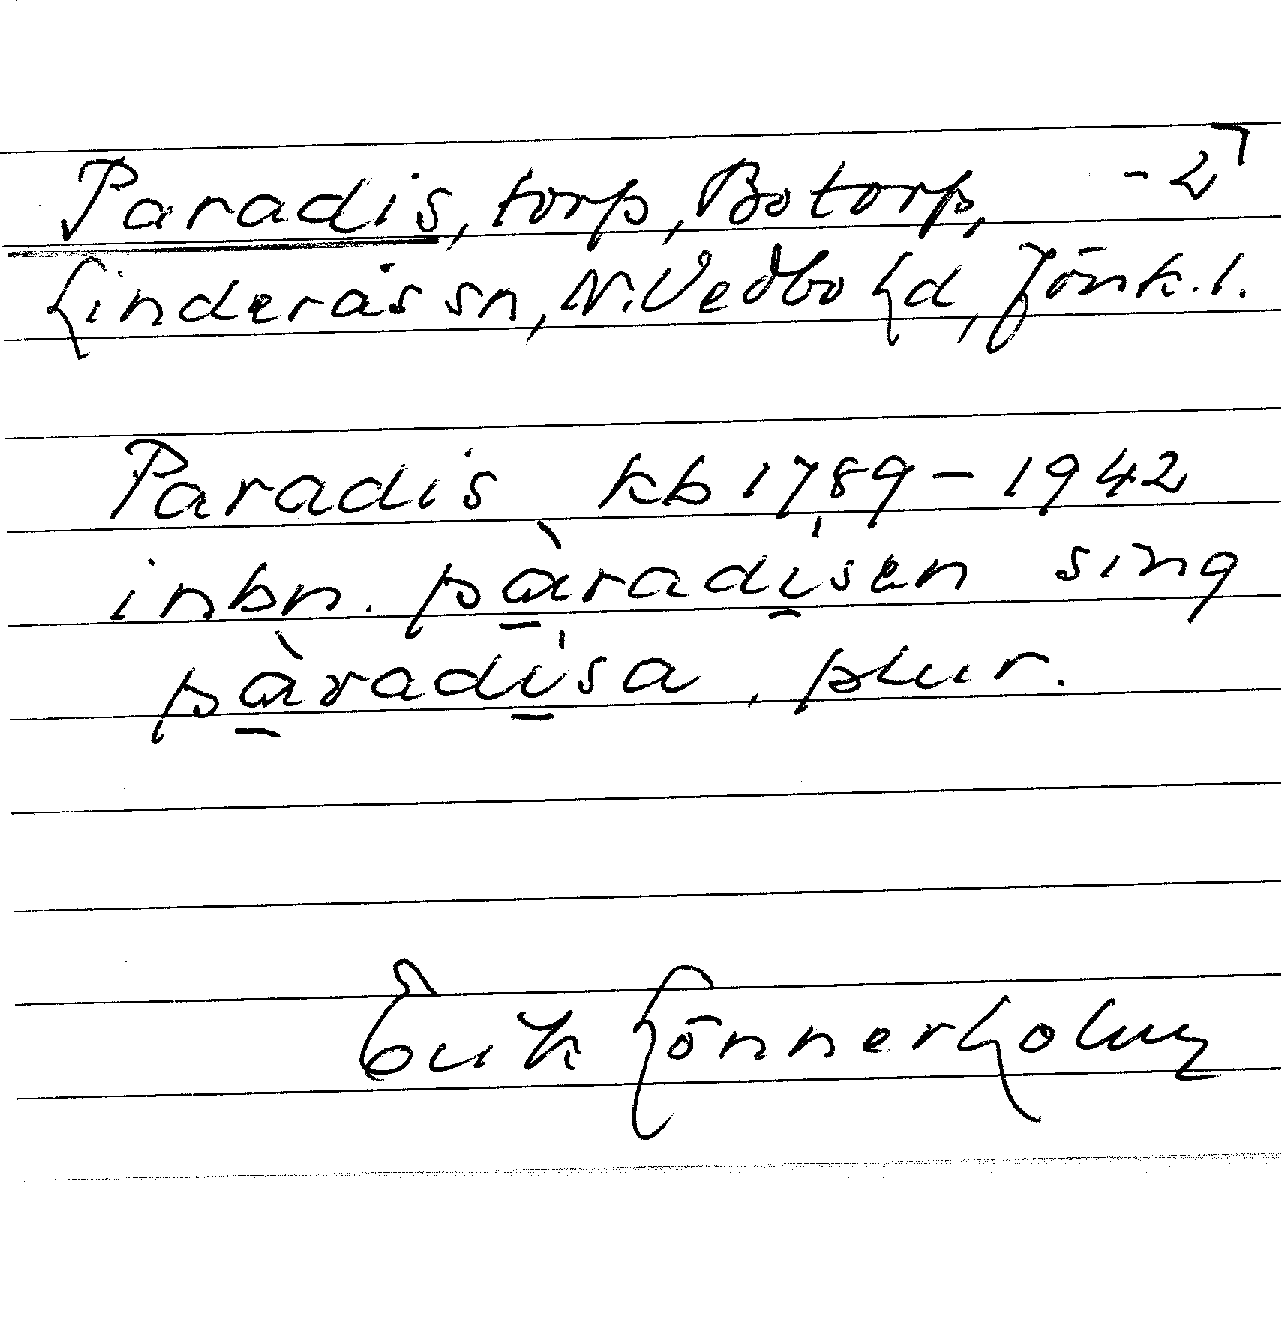 Paradis, torp, Botorp, -2⁷
Linderås sn, N. Vedbo hd, Jönk. l.
Paradis kb 1789-1942
inbn. pàradi̍sen sing
pàradi̍sa, plur.
Erik Lönnerholm